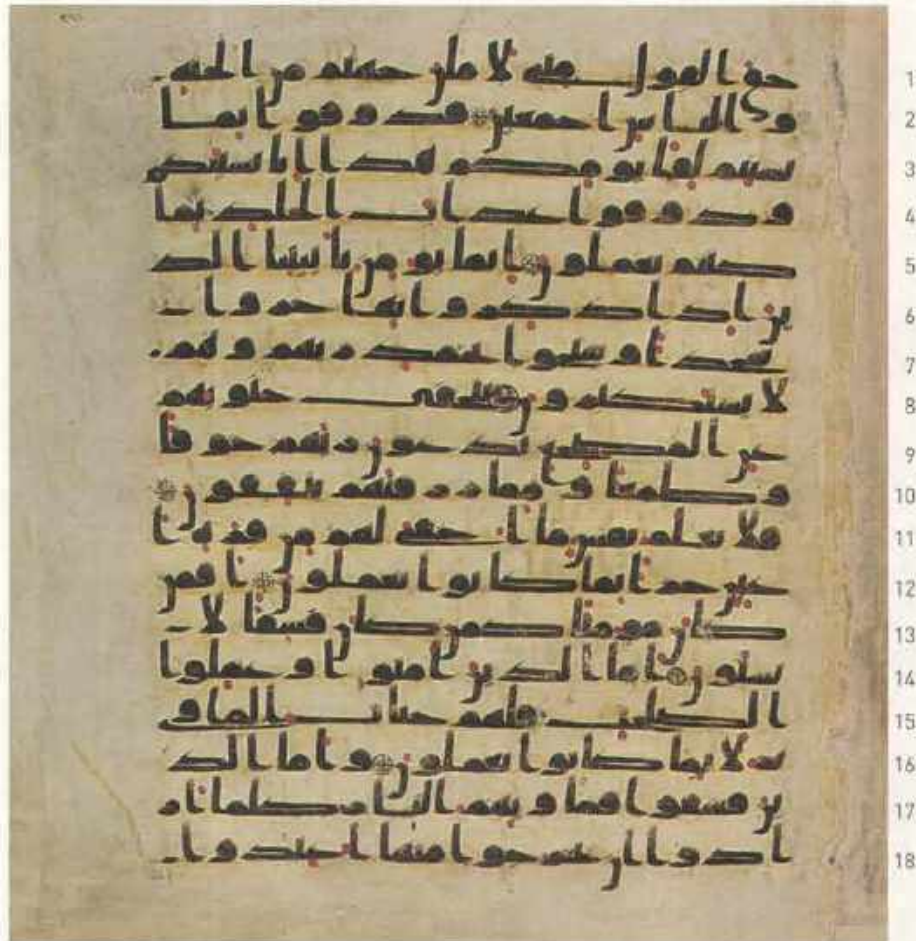 حق القول منى لاملن جهنم من الجنه 1
و الناس اجمعين فذوقوا بما 2
نسيتم لقا يومكم هذا انا نسينكم 3
وذوقوا عذاب الخلد بما 4
كنتم تعملون انما يومن باييتنا الذ 5
ين اذا ذكروا بها خروا 6
سجدا وسبحوا بحمد ربهم وهم 7
لا يستكبرون تتجفى جنوبهم 8
عن المضجع يدعون ربهم خوفا 9
وطمعا ومما رزقنهم ينفقون 10
فلا تعلم نفس ما اخفى لهم من قره ا 11
عين جزا بما كانوا يعملون افمن 12
كان مومنا كمن كان فسقا لا 13
يستون اما الذين امنوا وعملوا 14
الصلحت فلهم جنات الماو 15
ى نزلا بما كانوا يعملون واما الذ 16
ين فسقوا فماويهم النار كلما ار 17
ادوا ان يخرجوا منها اعيدوا 18